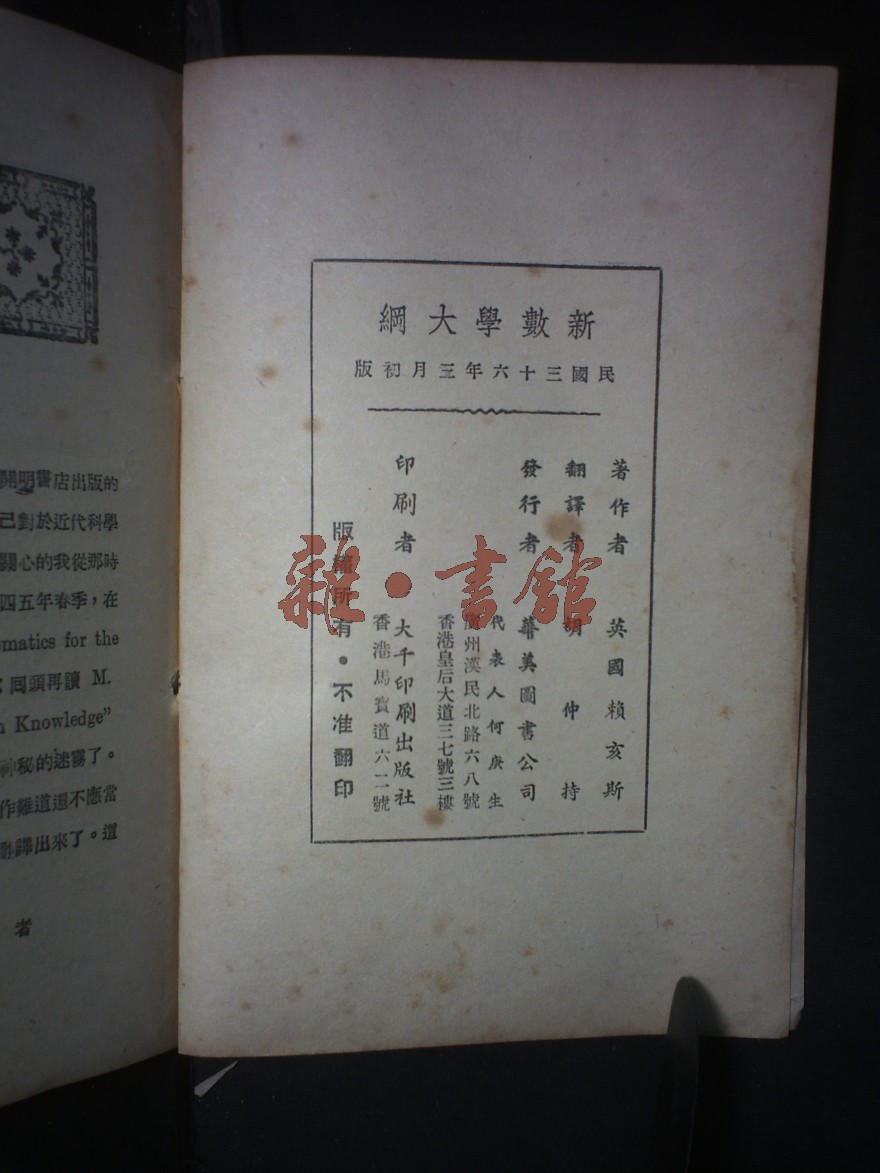 新數學大綱
民國三十六年三月初版
著作者 英國賴亥斯
翻譯者 胡仲持
發行者 華美圖書公司
代表人何庚生
廣州漢民北路六八號
香港皇后大道三七號三樓
印刷者 大千印刷出版社
香港馬寶道六二號
版權所有·不准翻印
雜·書館
開明書店出版的
己對於近代科學
關心的我從那時
四五年春季,在
matics for the
回頭再讀 M.
Knowledge”
神秘的迷霧了。
作難道還不應當
譯出來了。這
者